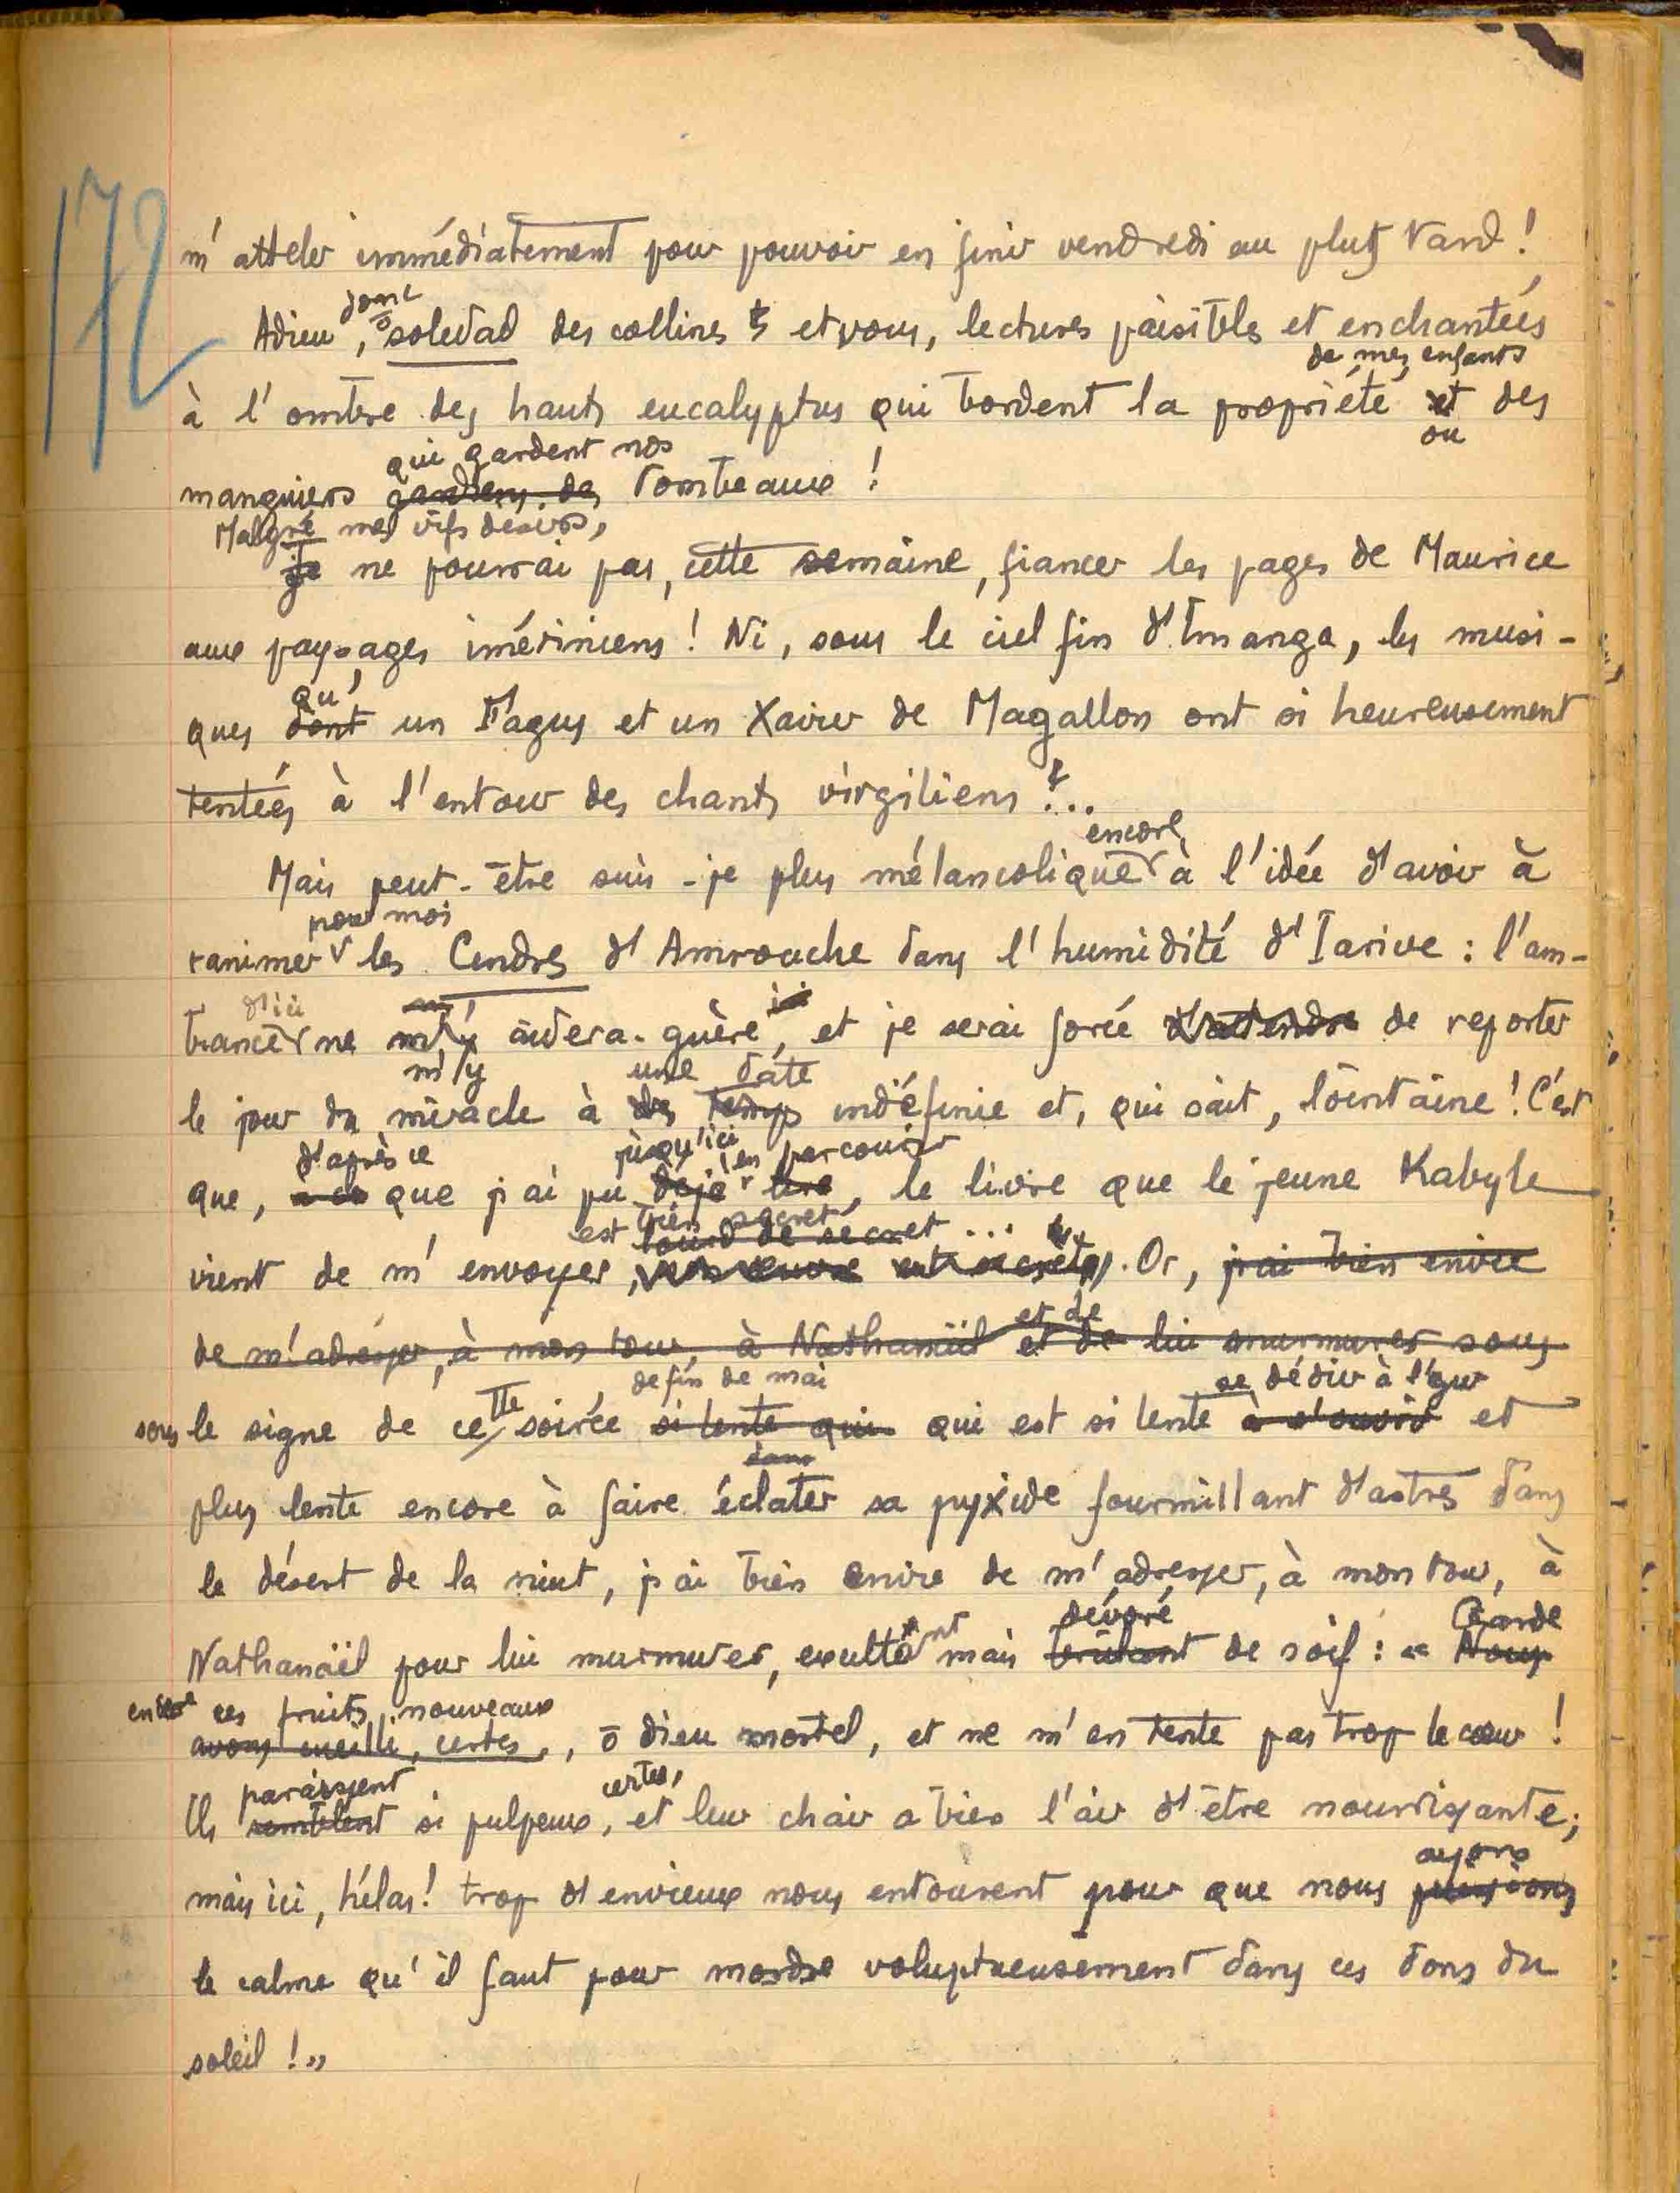 172
m'atteler immédiatement pour pouvoir en finir vendredi au plus tard !
donc
Adieu, ô soledad des collines et vous, lectures paisibles et enchantées
de mes enfants
à l'ombre des hauts eucalyptus qui bordent la propriété et des
ou
qui gardent nos
manguiers gardiens des tombeaux !
Malgré mes vifs désirs,
je ne pourrai pas, cette semaine, fiancer les pages de Maurice
aux paysages imériniens ! Ni, sous le ciel fin d'Imanga, les musi-
qu'
ques dont un Fagus et un Xavier de Magallon ont si heureusement
tentées à l'entour des chants virgiliens ?...
encore
Mais peut-être suis-je plus mélancolique à l'idée d'avoir à
pour moi
ranimer les Cendres d'Amrouche dans l'humidité d'Iarive : l'am-
d'ici
biance ne m'y aidera guère ici, et je serai forcé d'attendre de reporter
m'y une date
le jour du miracle à des temps indéfinie et, qui sait, lointaine ! C'est
d'après ce jusqu'ici en parcourir
que, à ce que j'ai pu déjà lire, le livre que le jeune Kabyle
est bien secret
lourd de secret ...
vient de m'envoyer, son œuvre est secrète. Or, j'ai bien envie
et de
de m'adresser, à mon tour, à Nathanaël et de lui murmurer sous
de fin de mai se dédire à l'azur
sous le signe de cette soirée si lente qui qui est si lente à s'ouvrir et
dans
plus lente encore à faire éclater sa pyxide fourmillant d'astres dans
le désert de la nuit, j'ai bien envie de m'adresser, à mon tour, à
dévoré Garde
Nathanaël pour lui murmurer, exultant mais brûlant de soif : « Nous
encore ces fruits nouveaux
avons cueilli, certes, ô dieu mortel, et ne m'en tente pas trop le cœur !
paraissent certes,
Ils semblent si pulpeux, et leur chair a bien l'air d'être nourrissante ;
ayons
mais ici, hélas ! trop d'envieux nous entourent pour que nous puissions
le calme qu'il faut pour mordre voluptueusement dans ces dons du
soleil ! »